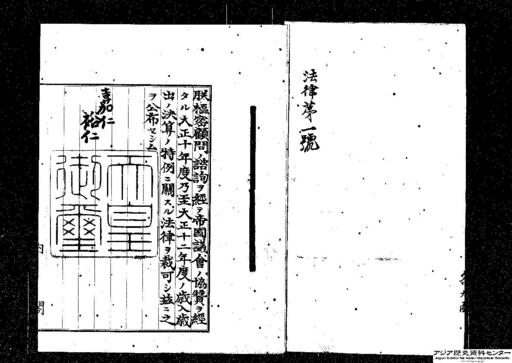 法律第一號
朕樞密顧問ノ諮詢ヲ經テ帝國議會ノ協賛ヲ經
タル大正十年度乃至大正十二年度ノ歳入歳
出ノ決算ノ特例ニ關スル法律ヲ裁可シ玆ニ之
ヲ公布セシム
嘉仁
裕仁
天皇
御璽
内閣
アジア歴史資料センター
Japan Center for Asian Historical Records